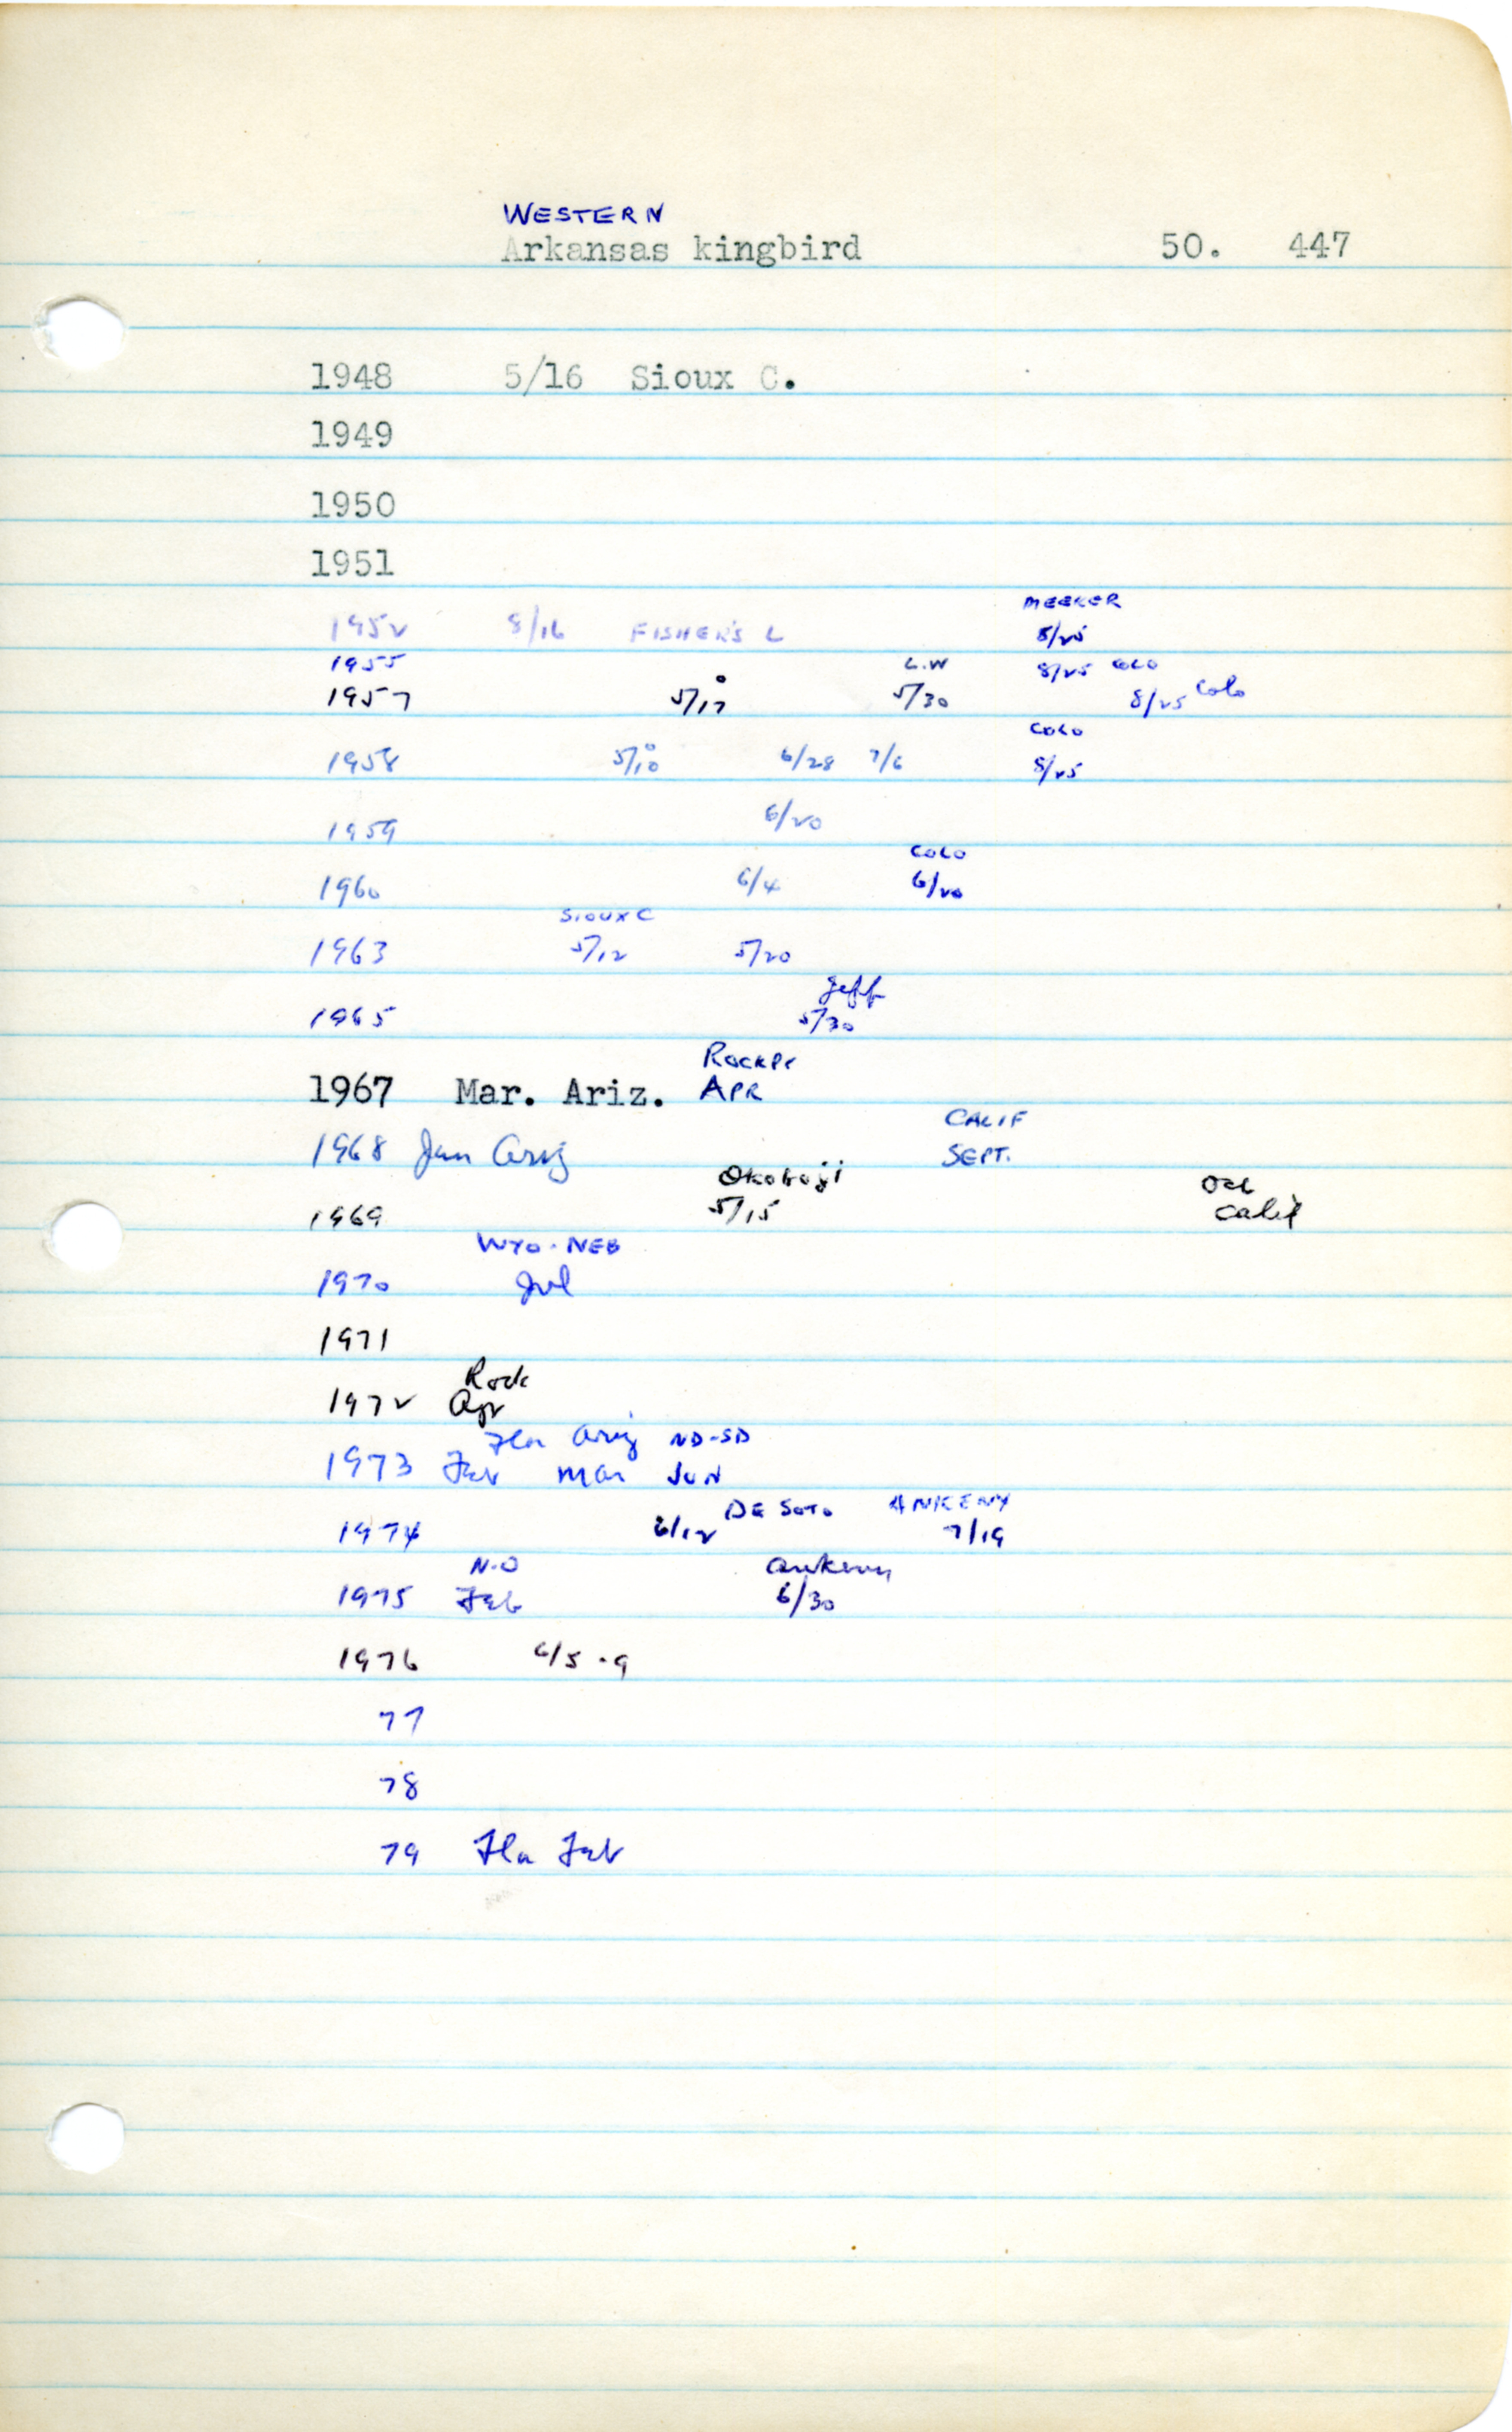 WESTERN
Arkansas kingbird 50. 447
1948 5/16 Sioux C.
1949
1950
1951
MEEKER
1952 8/16 FISHER'S L 8/25
1955 L.W 8/25 COLO
1957 5/17 5/30 8/25 Colo
COLO
1958 5/10 6/28 7/6 8/25
1959 6/20
COLO
1960 6/4 6/20
SIOUX C
1963 5/12 5/20
Jeff
1965 5/30
1967 Mar. Ariz. APR
CALIF
1968 Jan Ariz SEPT.
Okoboji Oct
1969 5/15 Calif
WYO-NEB
1970 Jul
1971
Rock
1972 Apr
Fla Ariz ND-SD
1973 Feb Mar JUN
DE SOTO ANKENY
1974 6/12 7/19
N.O Ankeny
1975 Feb 6/30
1976 6/5-9
77
78
79 Fla Feb